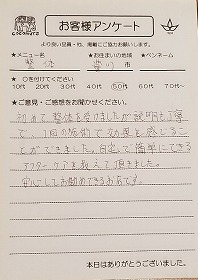 cocokara
お客様アンケート
より良い品質・他、掲載にご協力お願いします。
★メニュー名 ★お住まいの地域 ★ペンネーム
整体 豊川市
★○を付けてください
10代 20代 30代 40代 50代 60代 70代～
★ご意見・ご感想をお聞かせください。
初めて整体を受けましたが説明も丁寧
で、1回の施術で効果を感じるこ
とができました。自宅で簡単にできる
アフターケアを教えて頂きました。
安心してお勧めできるお店です。
本日はありがとうございました。